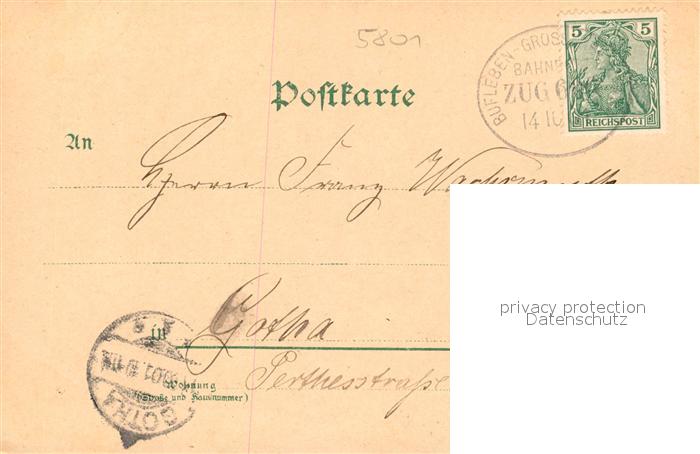 5801
BUFLEBEN-GROSS
BAHNP
ZUG 6
14 10
5 5
REICHSPOST
Postkarte
An
Herrn Franz
privacy protection
Datenschutz
in Gotha
Perthesstraße
Wohnung
(Straße und Hausnummer)
GOTHA